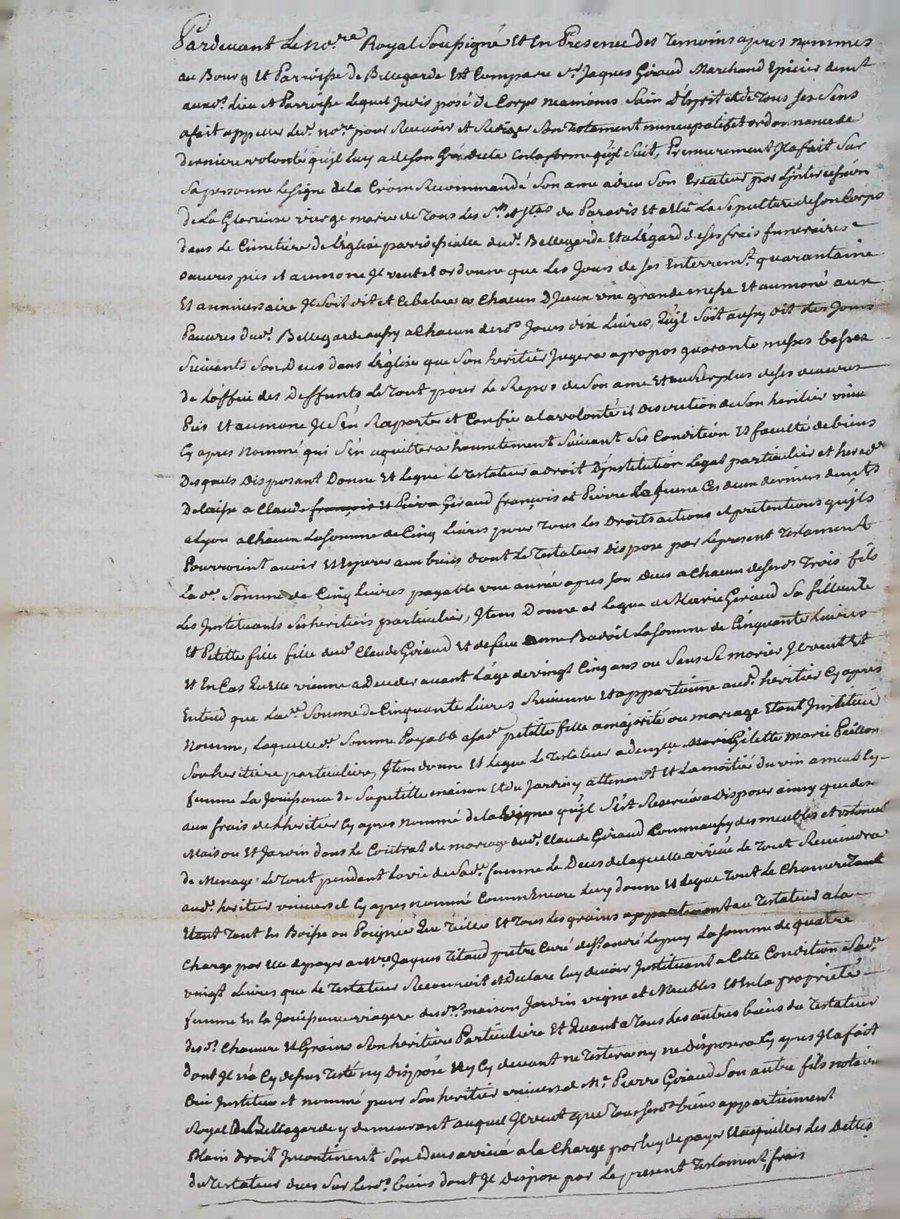 Pardevant Le no.re Royal Soussigné Et En Presence des Temoins apres nommes
au Bourg Et Parroisse de Bellegarde Est Comparu S.r Jaques Giraud Marchand Epicier demt
auxd. Lieu et Parroisse Lequel Indisposé de Corps neamoins Sain d'Esprit et de Tous Ses Sens
afait appeller led. no.re pour Recevoir et Rediger Son Testament nuncupatif et ordonnance de
derniere volonté qu'jl luy a de son Gré dicté en la forme qu'jl Suit, Premierement Jl a fait Sur
Sa personne Le Signe de la Croix Recommandé Son ame a dieu Son Createur par L'jntercession
de La Glorieuse vierge marie de Tous Les S.ts et S.tes du Paradis Et a Elu La Sepulture de son Corps
dans le Cimetiere de L'église parroissialle dud. Bellegarde Et a L'égard de Ses frais funeraires
oeuvres pies et aumone Jl veut et ordonne que Les Jours de Ses Enterrem.t quarantaine
Et anniversaire Jl Soit dit et Celebré a Chacun D'jceux une grande messe Et aumoné aux
Pauvres dud. Bellegarde aussy a Chacun desd. Jours dix Livres, Qu'jl Soit aussy dit Les Jours
Suivants Son Deces dans L'église que Son heritier Jugera apropos quarante messes basses
de L'office des Deffunts Le Tout pour Le Repos de Son ame Et au Surplus de Ses oeuvres
Pies Et aumone Jl S'en Raporte et Confie a la volonté et discretion de Son heritier
Cy apres Nommé qui S'en aquittera honnetement Suivant Ses Condition Et faculté de biens
Desquels disposant Donne Et Legue Le Testateur a Droit D'jnstitution Legat particulier et
Delaisse a Claude françois Et Pierre Giraud françois et Pierre Ces deux derniers demts
a Lyon a Chacun La Somme de Cinq Livres pour Tous Les Droits actions et pretentions qu'jls
Pourroient avoir Et Esperer aux biens dont le Testateur dispose par Le present Testament
La de. Somme de Cinq Livres payable une année apres Son Deces a Chacun de Sesd. Trois fils
Les Jnstituants Ses heritiers particuliers, Jtem Donne et Legue a Marie Giraud Sa filleule
Et Petitte fille fille dud. Claude Giraud Et de feue anne La Somme de Cinquante Livres
Et En Cas qu'elle vienne a Deceder avant L'age de vingt Cinq ans ou Sans Se marier Jl veut Et
Entend que La de. Somme de Cinquante Livres Revienne Et appartienne aud. heritier Cy apres
Nommé, Laquelle de. Somme Payable a Sad. petitte fille a majorité ou mariage Etant Jnstituée
Son heritiere particuliere, Jtem donne Et Legue Le Testateur a Gilette marie
femme La Jouissance de Sa petitte maison Et du Jardin y attenant Et La moitié du vin
aux frais de L'heritier Cy apres nommé de la vigne qu'jl S'est Reservée a disposer ainsy que des
Maison Et Jardin dans le Contrat de mariage dud. Claude Giraud Comme aussy des meubles et
de Menage Le Tout pendant La vie de Sad. femme Le Deces de laquelle arrivée Le Tout Reviendra
aud. heritier universel Cy apres nommé Comm'Encore Luy donne Et Legue Tout Le Chanvre Tant
Etant Tout En Boisse ou Poignée Que Et Tous Les grains appartenant au Testateur a la
Charge par Elle de payer a M.re Jaques Titaud pretre Curé de S.t andré Lepuy La Somme de quatre
vingt Livres que Le Testateur Reconnoit et Declare Luy devoir Jnstituant a Cette Condition Sad.
femme En la Jouissance viagere desd. maison Jardin vigne et Meubles et En la proprieté
desd. Chanvre Et Grains Son heritiere Particuliere Et Quant a Tous Les autres biens du Testateur
dont Jl n'a Cy dessus Testé ny Disposé Et Cy devant ne Testera ny ne Disposera Cy apres Jl a fait
Créé Jnstitué et nommé pour Son heritier universel M.e Pierre Giraud Son autre fils notaire
Royal De Bellegarde y demeurant auquel Jl veut que Tous Sesd. biens appartiennent
Plain droit Jncontinent Son Deces arrivé a la Charge par luy de payer Et aquitter Les Dettes
du Testateur dues Sur Lesd. biens dont Jl Dispose par Le present Testament, frais